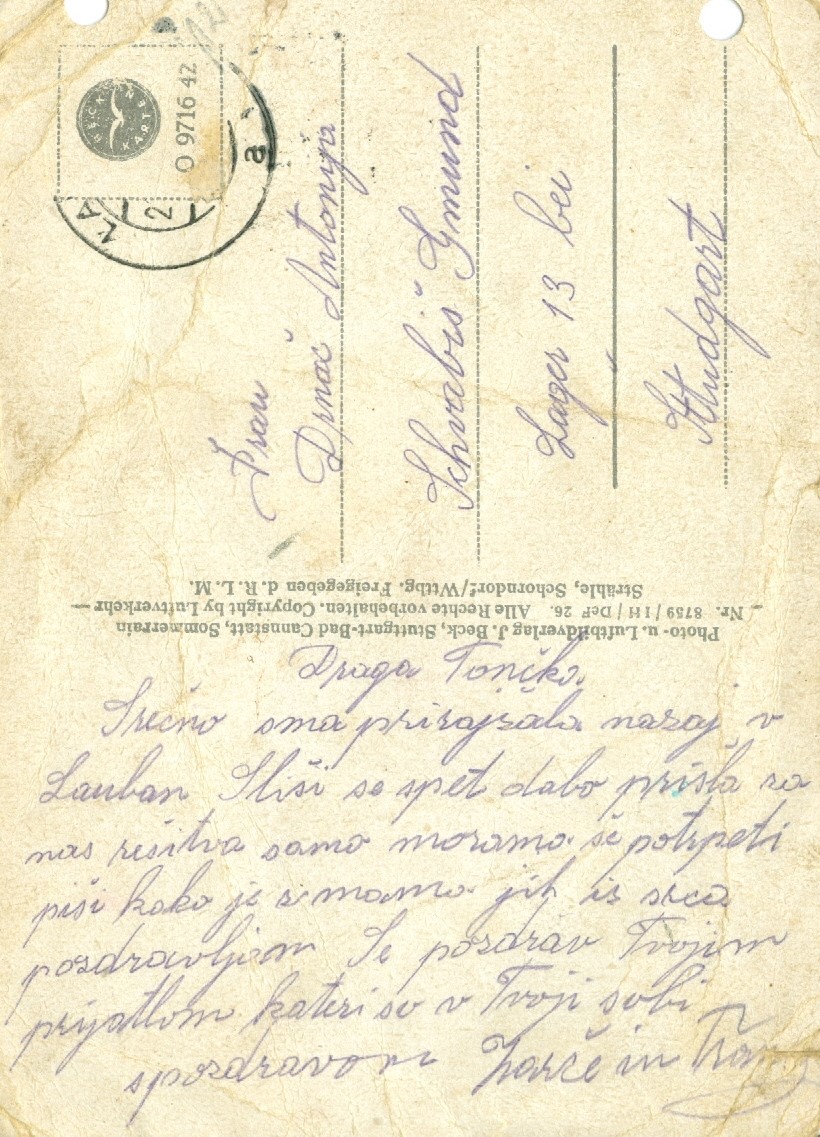 REICH KARTE
O 9716 42
LA
2
a
Frau
Drnač Antonija
Schvabiš Gmünd
Lager 13 bei
Studgart
Photo- u. Luftbildverlag J. Beck, Stuttgart-Bad Cannstatt, Sommerrain
Nr. 8759 / 1H / DeF 26. Alle Rechte vorbehalten. Copyright by Luftverkehr
Strähle, Schorndorf/Wttbg. Freigegeben d. R. L. M.
Draga Tončka
Srečno sma prirajžala nazaj v
Lauban Sliši se spet dabo prišla za
nas rešitva samo moramo še potrpeti
piši kako je z mamo jih iz srca
pozdravljam Še pozdrav Tvojim
prijatlom kateri so v Tvoji sobi
spozdravom in